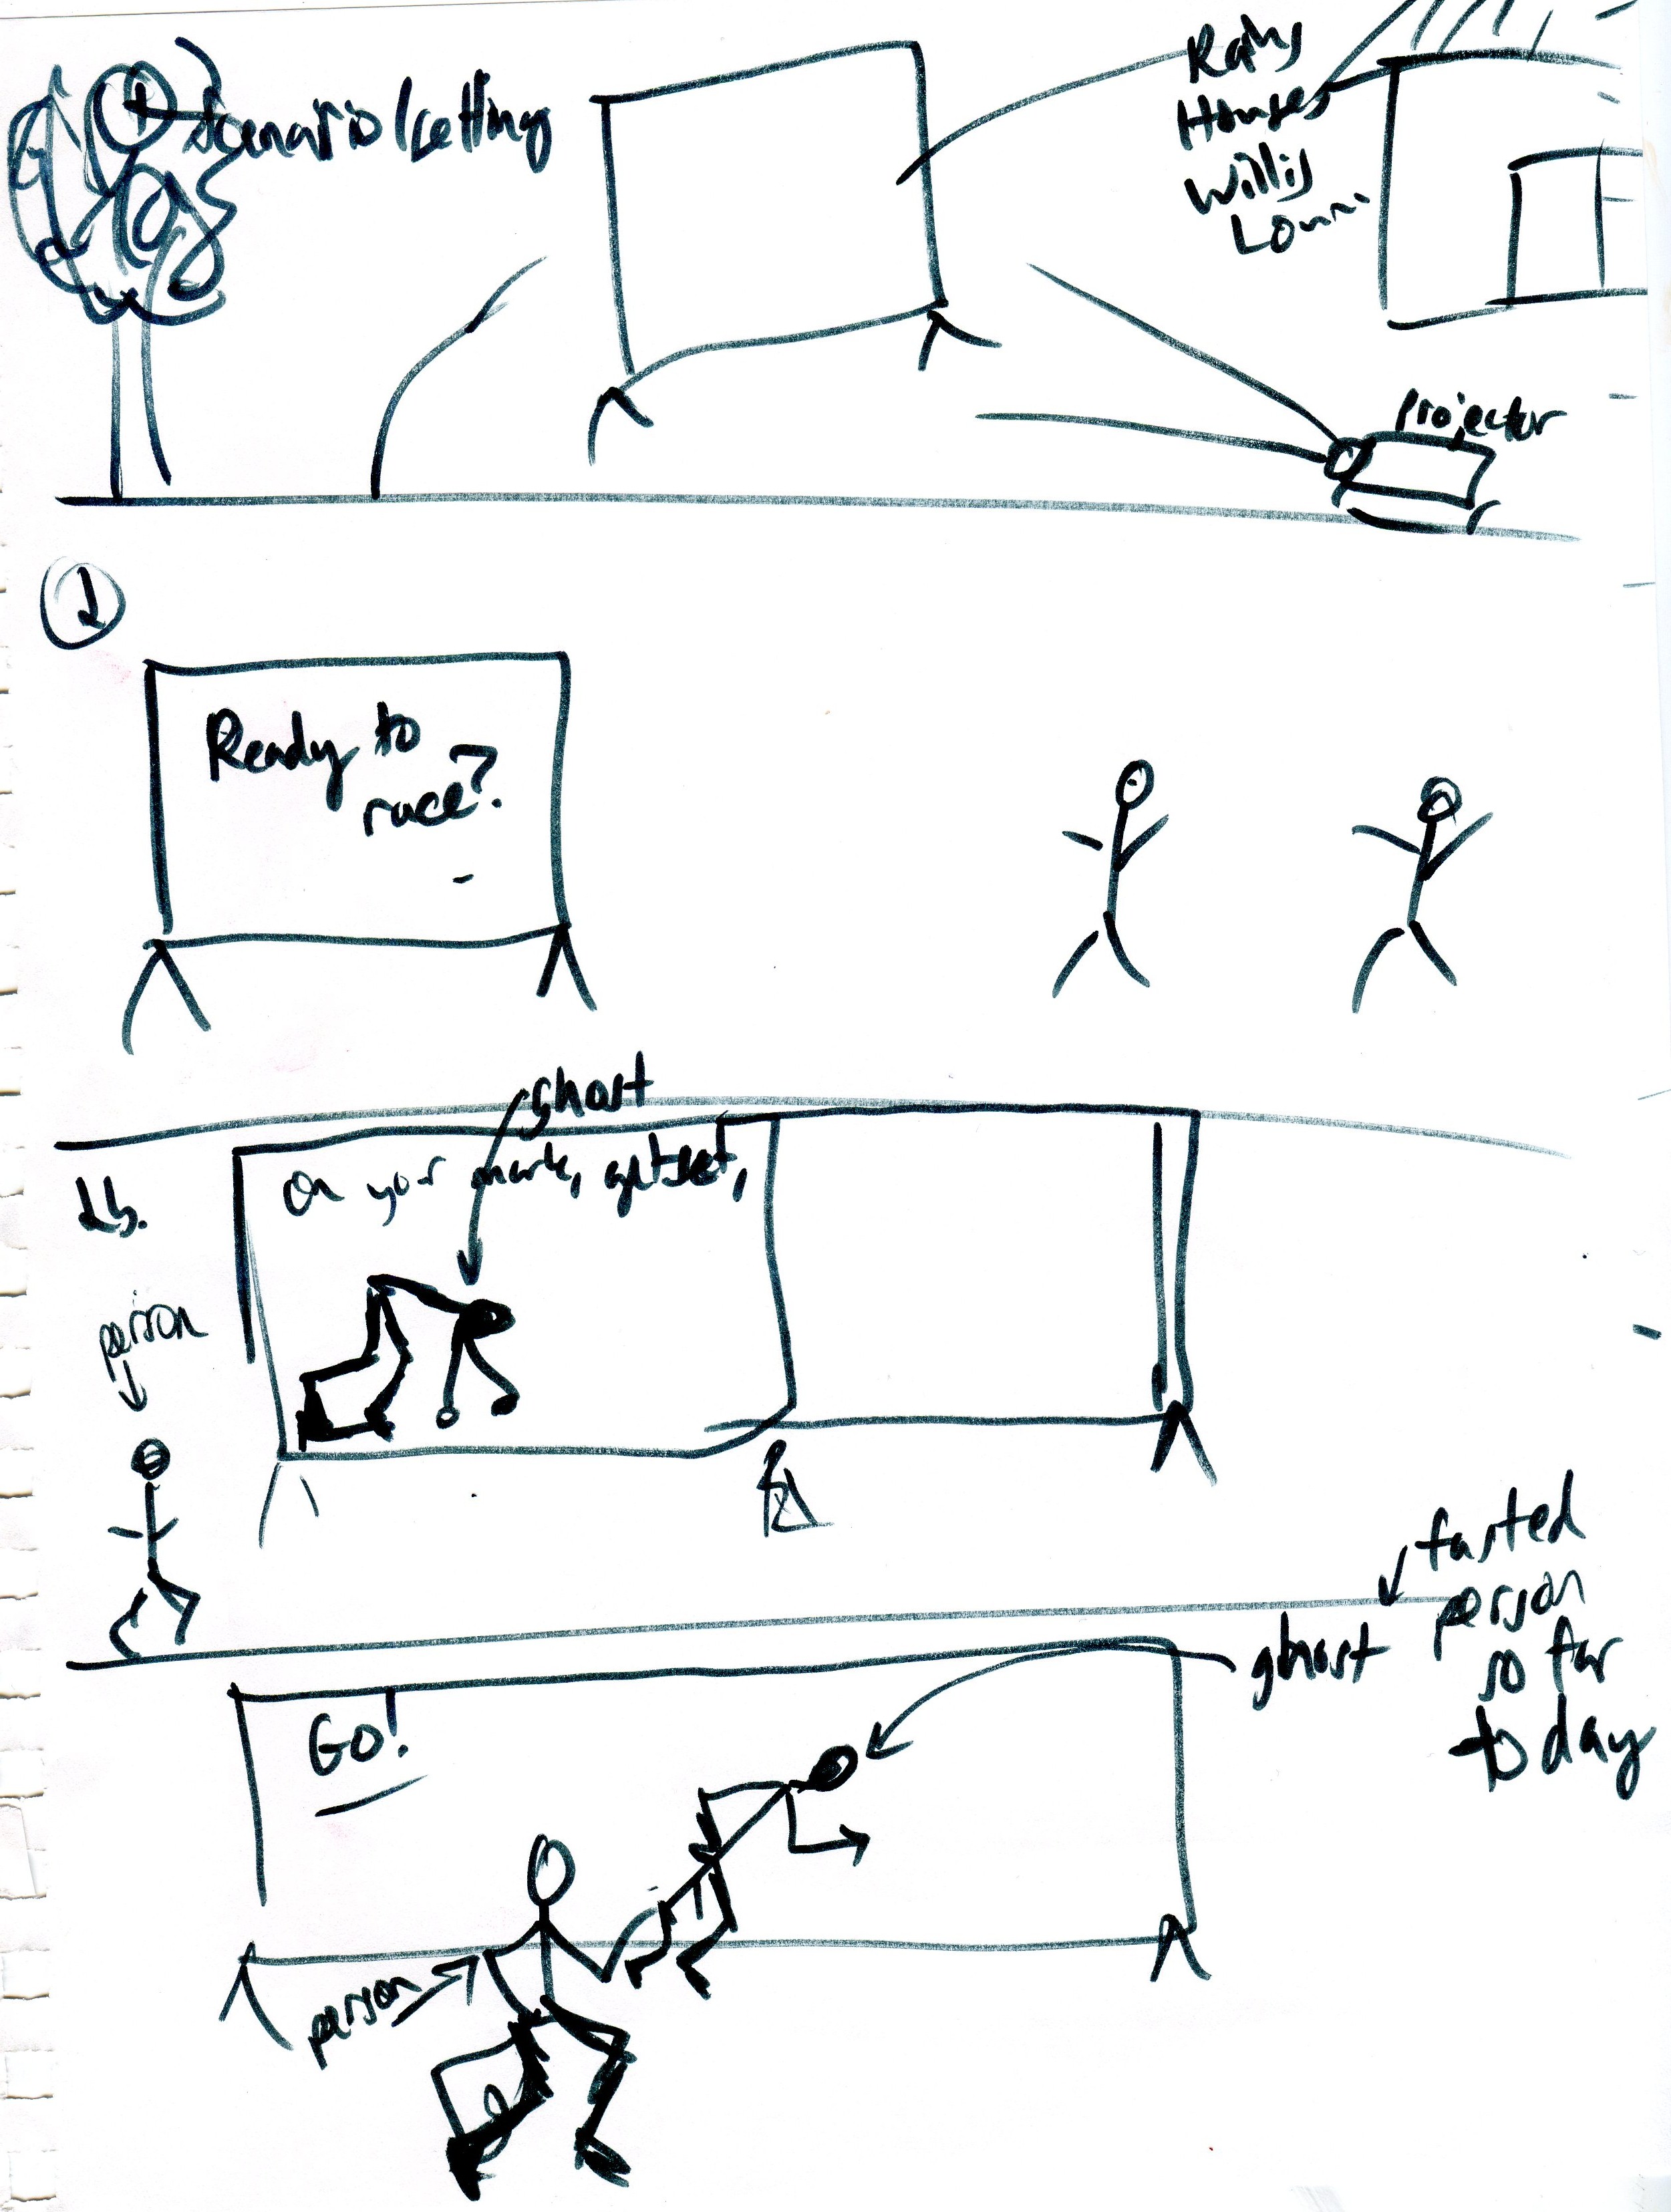 1 Scenario/setting
Houses
Willis
projector
1
Ready to
race?
ghost
On your mark, get set,
1b.
person
fasted
person
so far
today
ghost
Go!
person